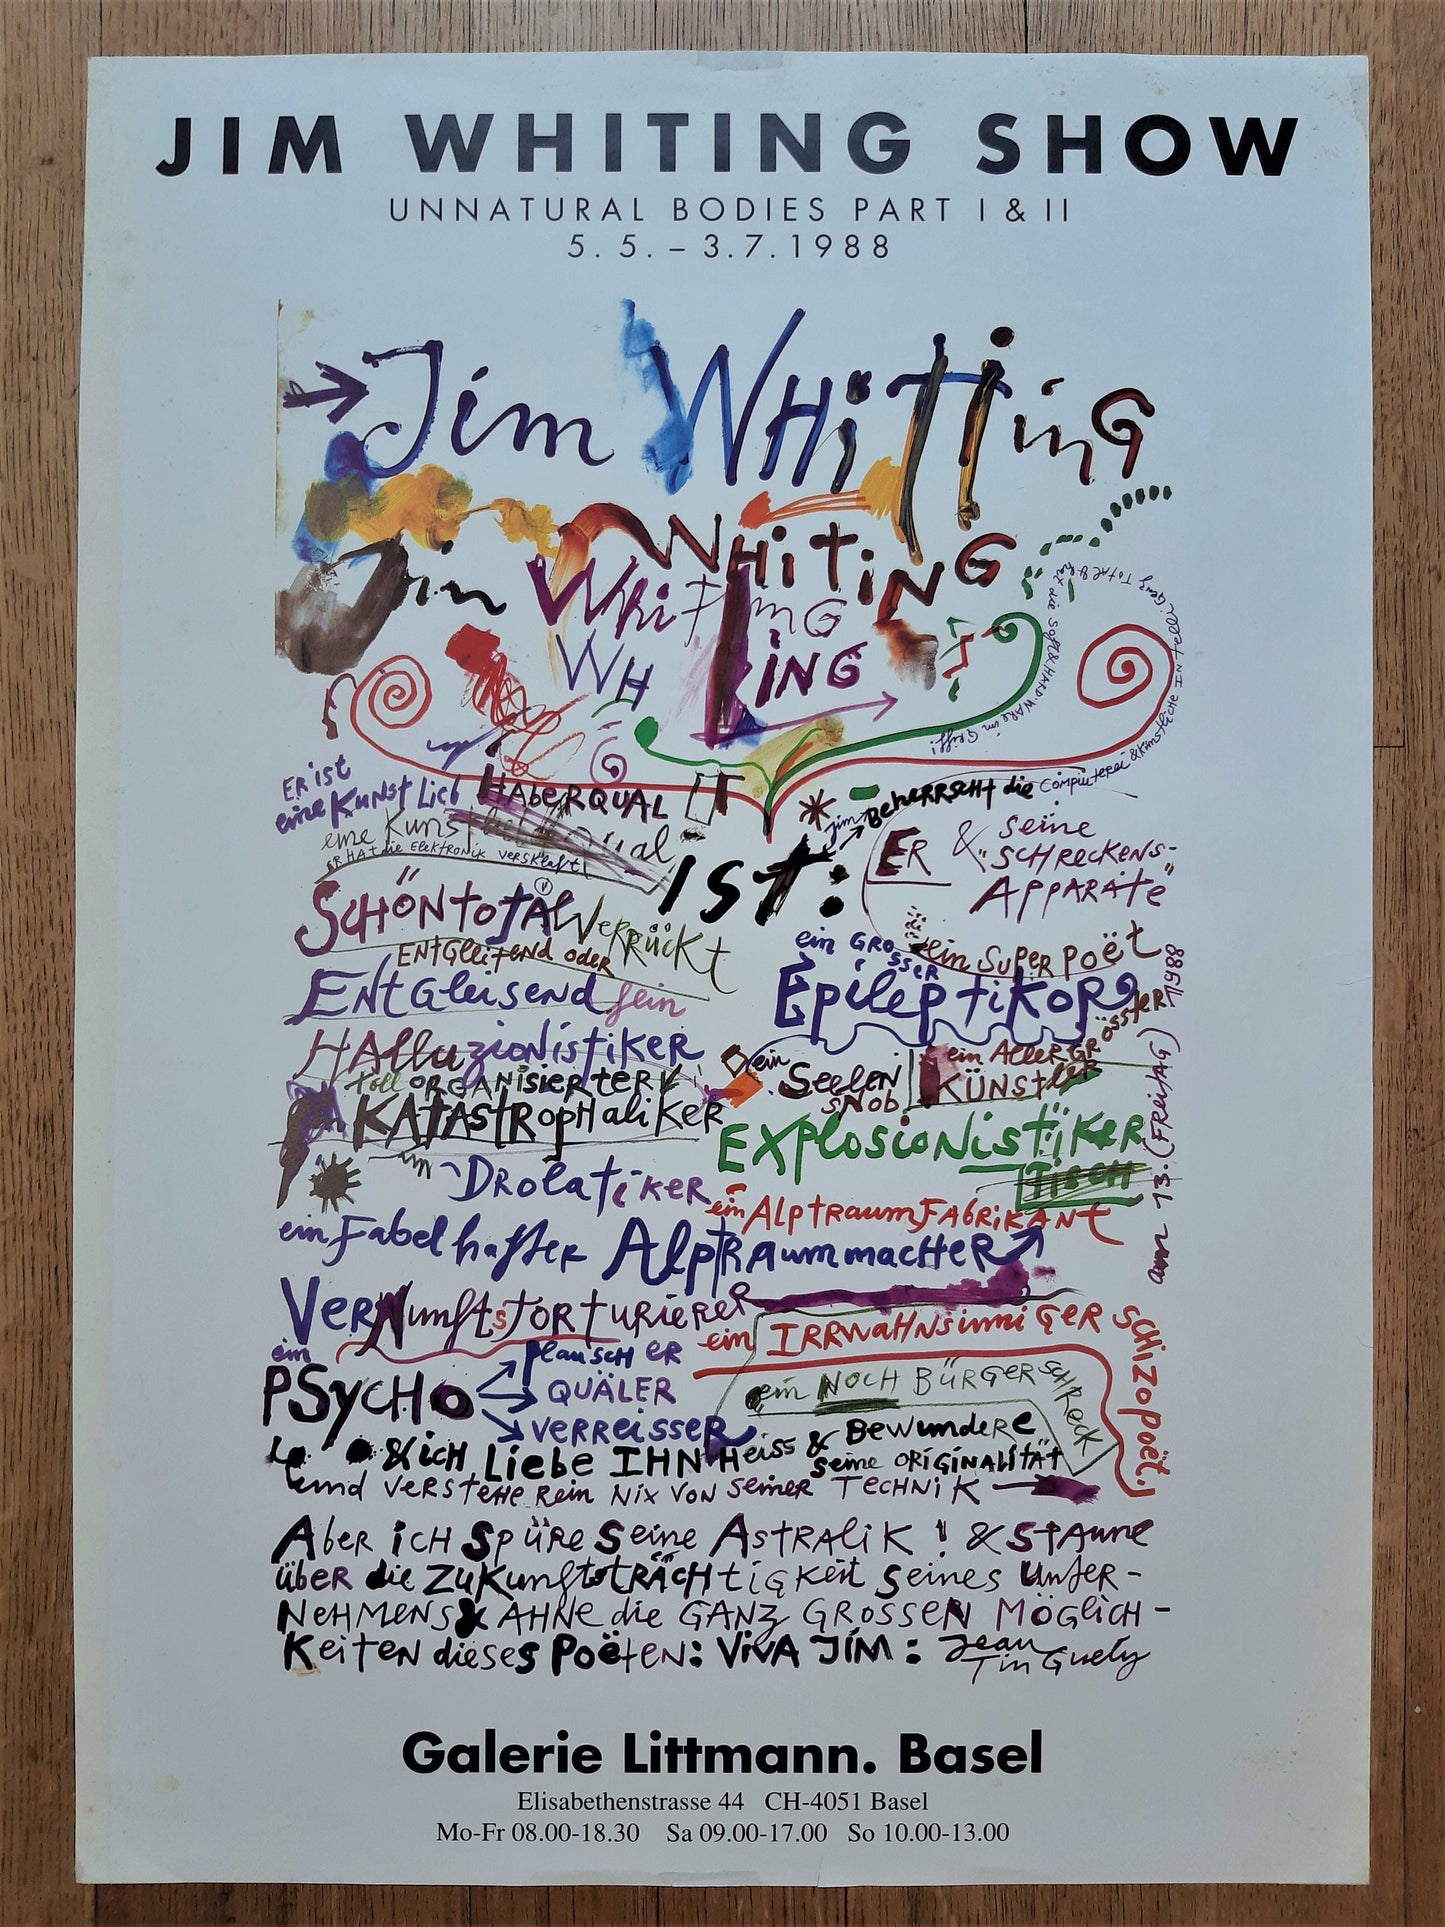 JIM WHITING SHOW
UNNATURAL BODIES PART I & II
5.5.–3.7.1988
Jim WHiTTinG
Jim WHiTiNG
WHiTinG
WH iNG
ER ist
eine KUNSt Lich HABERQUAL
eine Kunst
ER HAt die ELEKTRONIK VERSKlaft
IST:
jim BEHERRSCHt die COMPIUTEREI & KÜNSTLICHE INTElliGenz TOTAL & hat die Soft & HARDWARE im Griff!
ER & seine
"SCHRECKENS-
APPARAtE"
SCHÖN tOtAL VERRÜCKT
ENtGLEITEND ODER
ENtGleisend fein
HAlluzioNistiKER
toll ORGANISIERTER
KAtAStROpHaliKER
DRolatiKER
ein GROSSER
EpileptiKOR
ein SUPER POËT
ein Seelen
SNOb
ein AllerGRÖSSTER
KÜNStLER
EXplosioNistiKER
TISCH
am 13. (FREitAG) 1988
ein AlptraumFABRiKANt
ein Fabelhafter AlptRAummacHeR
VERNunftstORtURIERER
ein IRRWAHNsinniGER SCHIZOPOËT.
ein
PSYCHO
plauschER
QUÄLER
VERREISSER
ein NOCH BÜRGERSCHRECK
& ich Liebe IHN Heiss & BEWUNDERE
seine ORiGiNALitÄT
und VERSTEHE Rein Nix VON Seiner TECHNiK
Aber ich Spüre Seine AstRALiK ! & StAune
über die ZUKunftstRÄCHtiGKeit Seines Unter-
NEHMENS & AHNE die GANZ GROSSEN MÖGLiCH-
KeiteN dieses Poëten: ViVA JiM: Jean
Tinguely
Galerie Littmann. Basel
Elisabethenstrasse 44 CH-4051 Basel
Mo-Fr 08.00-18.30 Sa 09.00-17.00 So 10.00-13.00